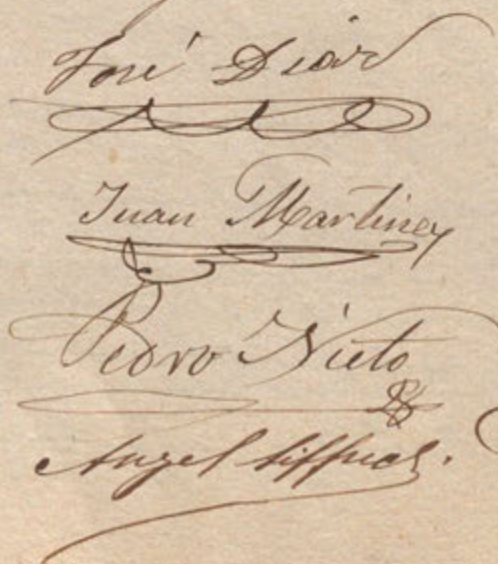 José Diaz
Juan Martinez
Pedro Nieto
Angel